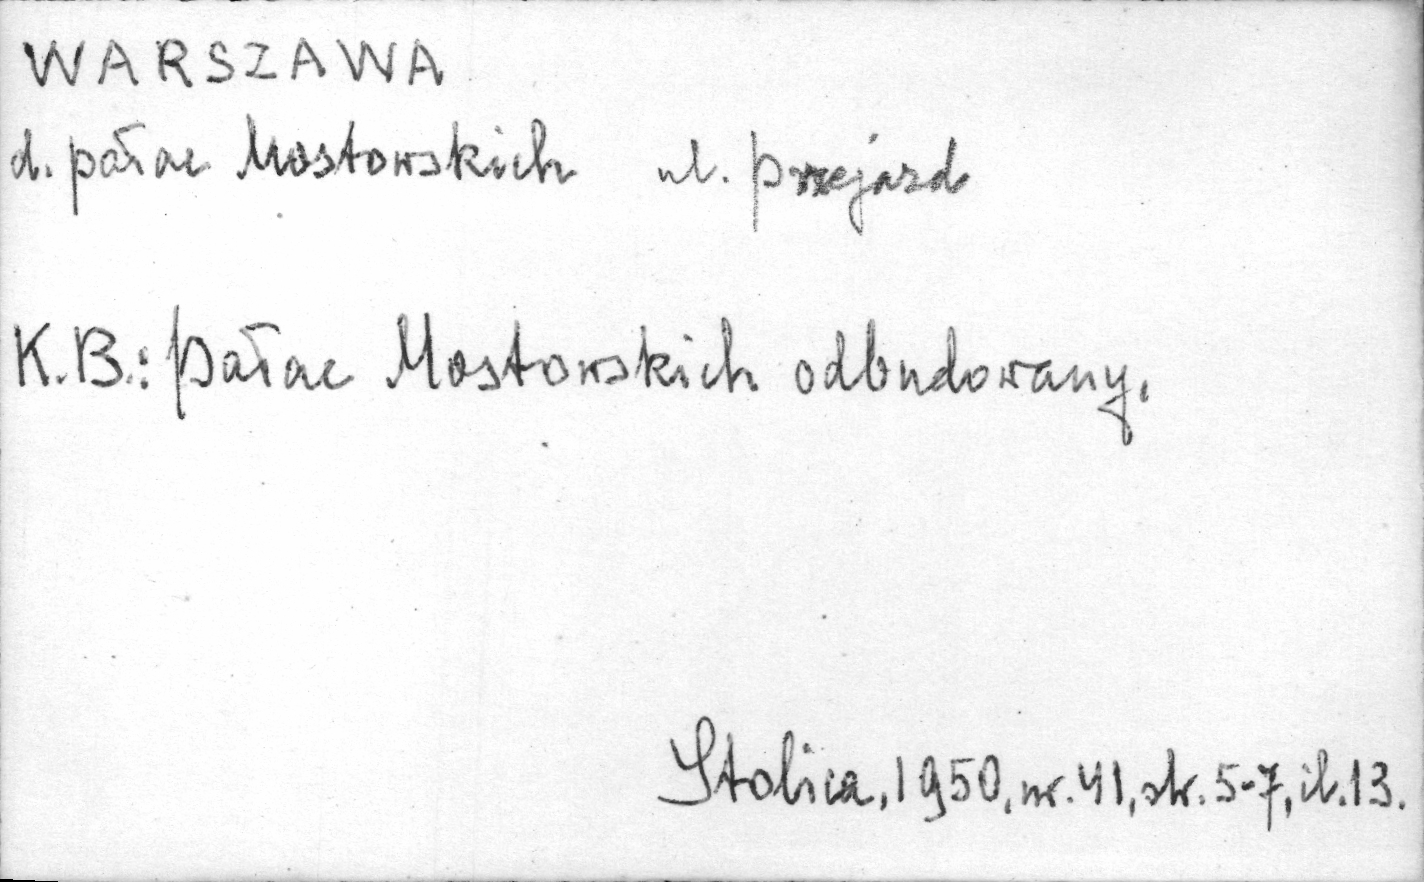 WARSZAWA
d. pałac Mostowskich ul. Przejazd
K.B.: Pałac Mostowskich odbudowany.
Stolica, 1950, nr. 41, str. 5-7, il. 13.